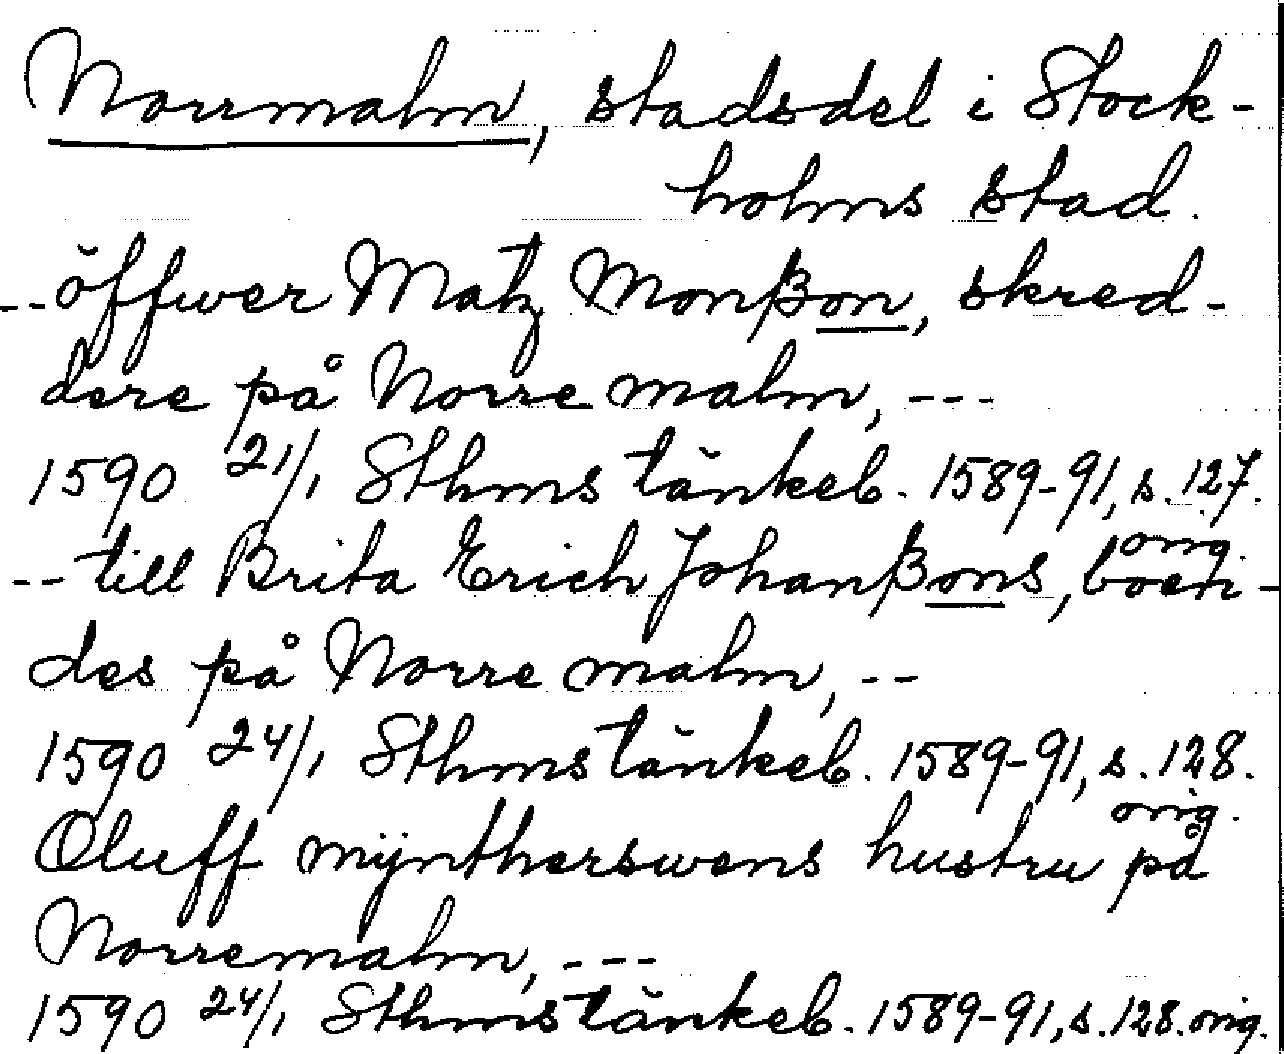 Norrmalm, stadsdel i Stock-
holms stad.
--öffwer Matz Monßon, skred-
dere på Norre malm, ---
1590 21/1 Sthms tänkeb. 1589-91, s. 127.
orig.
--till Brita Erich Johanßons, boen-
des på Norre malm, --
1590 24/1 Sthms tänkeb. 1589-91, s. 128.
orig.
Oluff mÿntherswens hustru på
Norremalm, ---
1590 24/1 Sthms tänkeb. 1589-91, s. 128. orig.